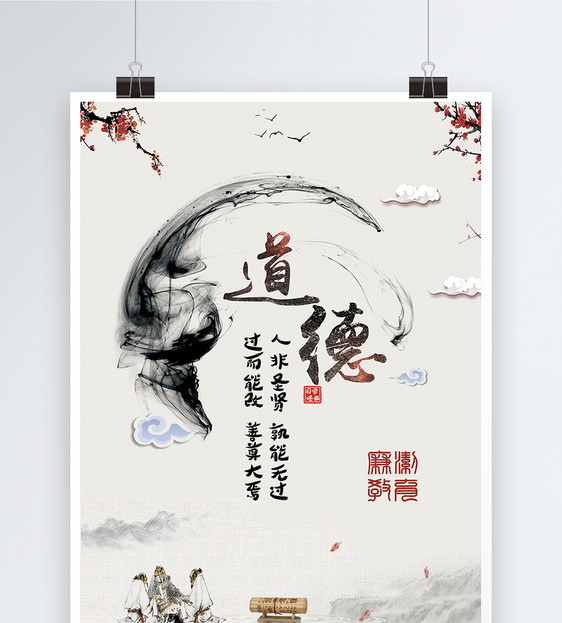 道德
人非圣贤 孰能无过
过而能改 善莫大焉
廉潔
教育